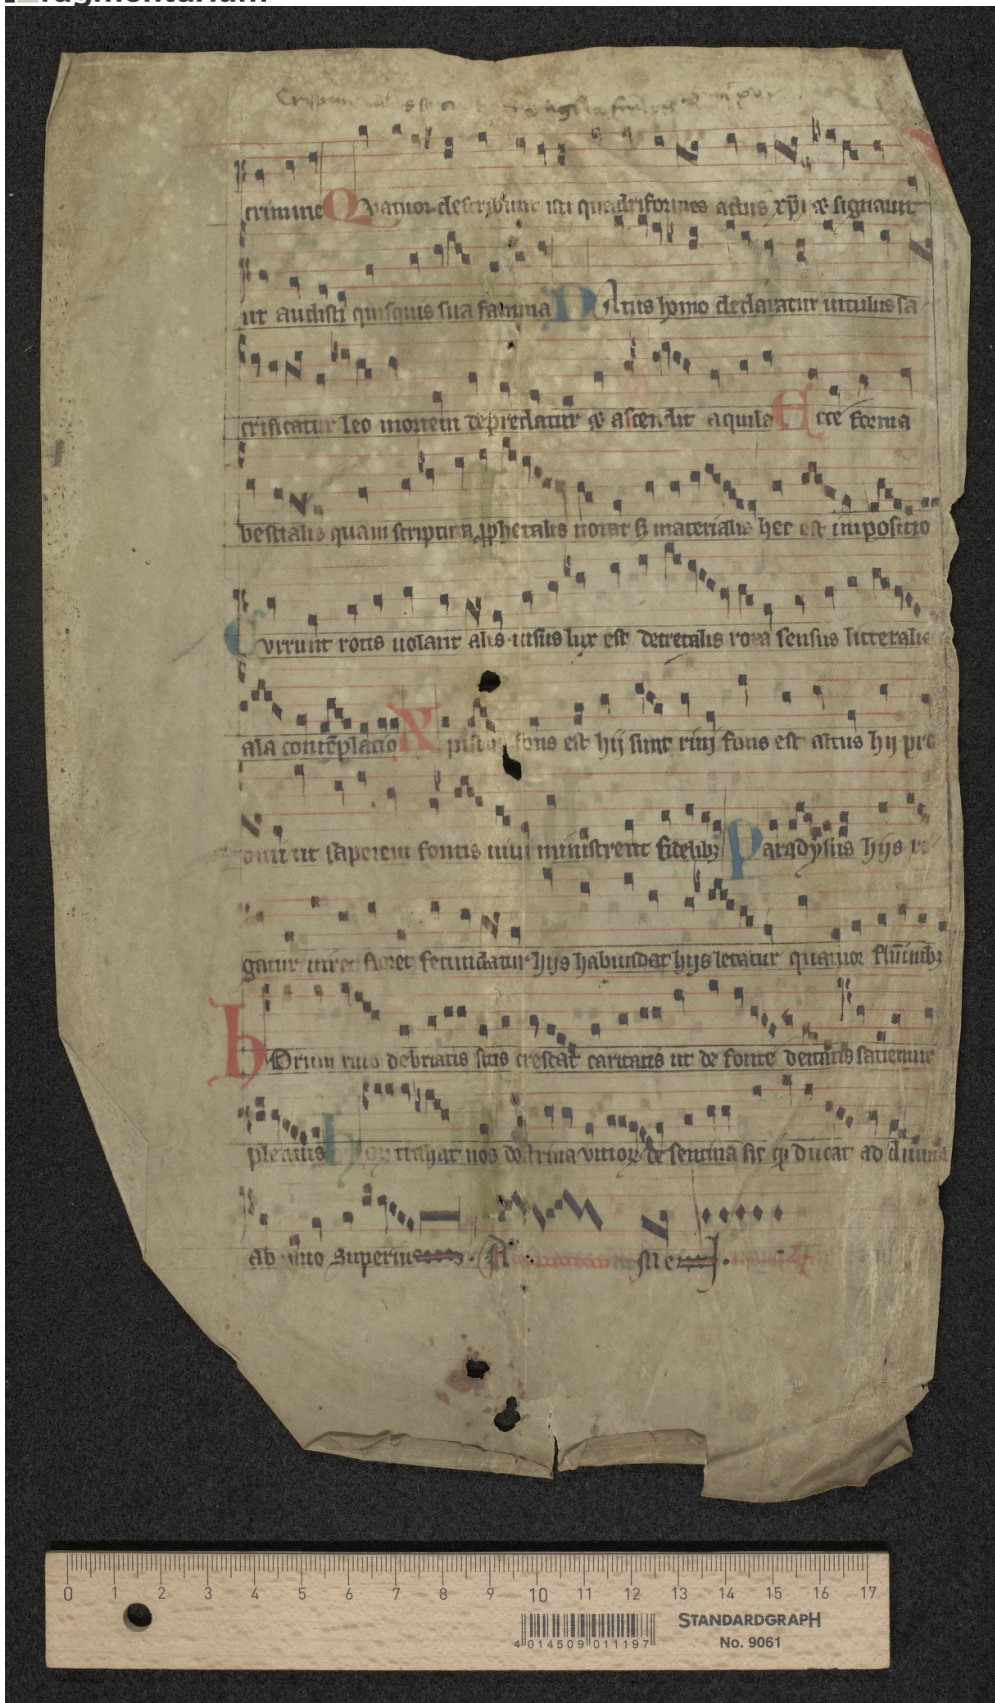 crimine Quatuor describunt isti quadriformes actus xp̄i ⁊ signant
ut audisti quisquis sua formma NAtus homo declaratur uitulus sa
crificatur leo mortem depredatur ⁊ ascendit aquila Ecce forma
bestialis quam scriptura ꝓphetalis notat materialis hec est impositio
Currunt rotis uolant alis uisus lux est decretalis rota sensus litteralis
ala contēplatio Xpistus fons est hij sunt riui fons est altus hij pro
ut saporem fontis uiui ministrent fidelibꝫ Paradysus hijs ri
gatur uiret floret fecundatur hijs habundat hijs letatur quatuor fluminibꝫ
hOrum riuis debriatis sitis crescat caritatis ut de fonte deitatis satiemur
plenius hor trahat nos doctrina vitioꝝ de sentina sic ꝙ ducat ad diuina
ab imo superius. A Men.
0 1 2 3 4 5 6 7 8 9 10 11 12 13 14 15 16 17
4 014509 011197
STANDARDGRAPH
No. 9061